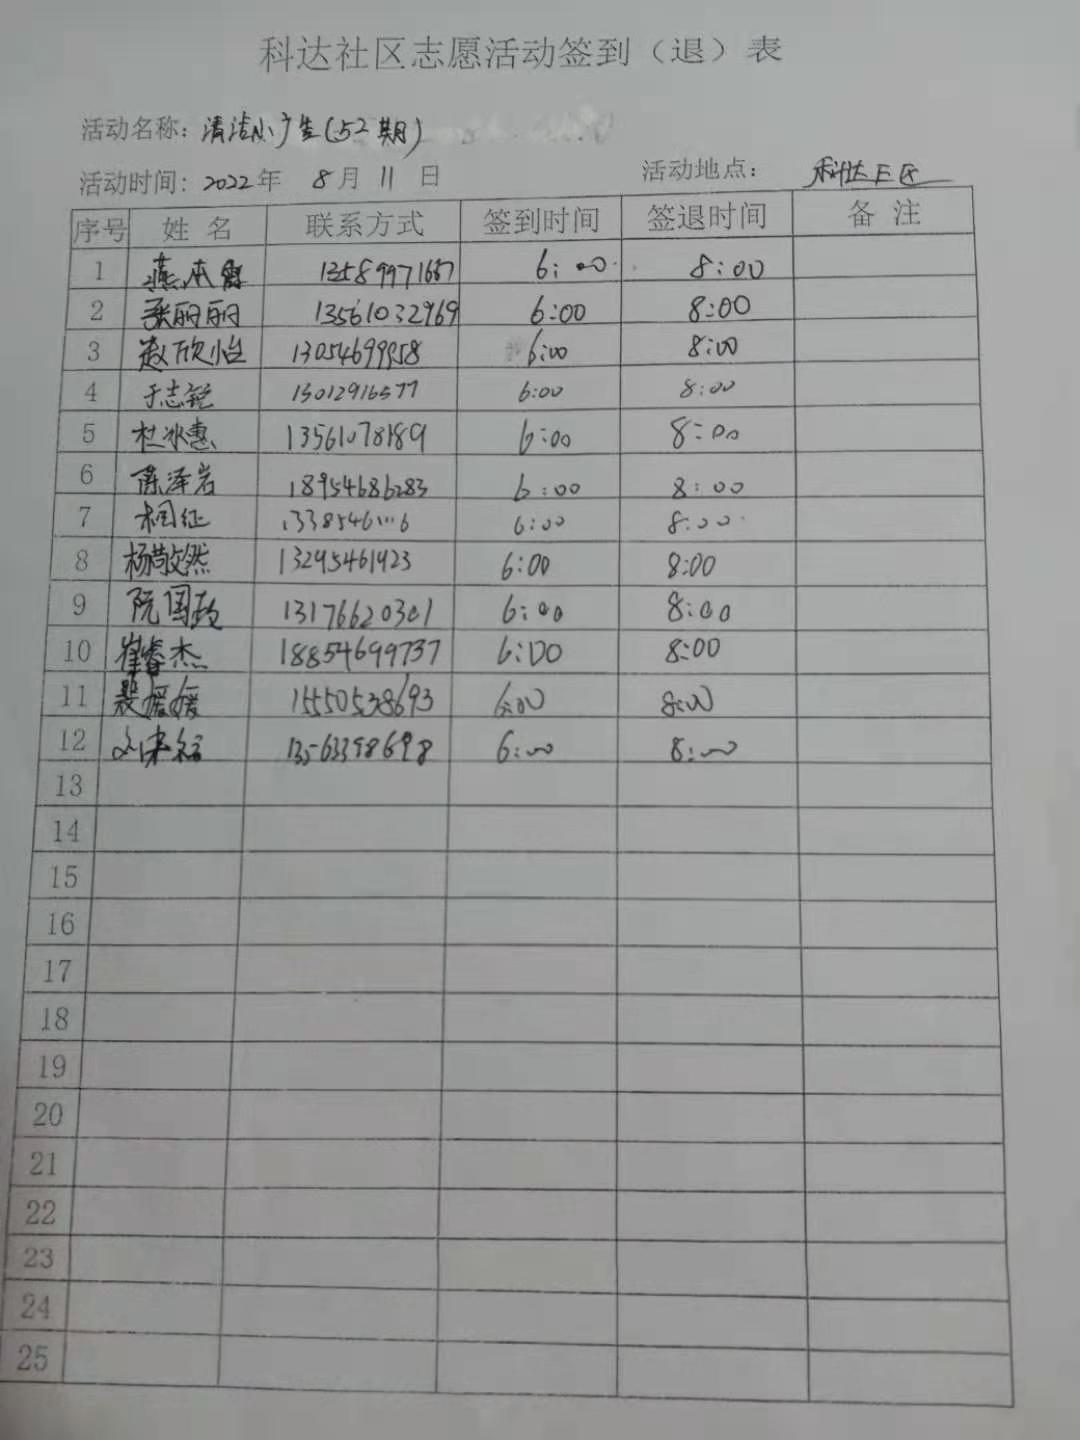 科达社区志愿活动签到（退）表
活动名称：清洁小广告(52期)
活动时间：2022年 8月 11日 活动地点：科达E区
序号 姓名 联系方式 签到时间 签退时间 备注
1 燕 13589971667 6:00 8:00
2 张丽丽 13561032969 6:00 8:00
3 赵欣怡 13054699958 6:00 8:00
4 于志锐 15012916577 6:00 8:00
5 杜冰惠 13561078189 6:00 8:00
6 陈泽岩 18954686283 6:00 8:00
7 征 6:00 8:00
8 杨敬然 13295461923 6:00 8:00
9 阮国 13176620301 6:00 8:00
10 崔睿杰 18854699737 6:00 8:00
11 裴媛媛 15550538693 6:00 8:00
12 13563398698 6:00 8:00
13
14
15
16
17
18
19
20
21
22
23
24
25